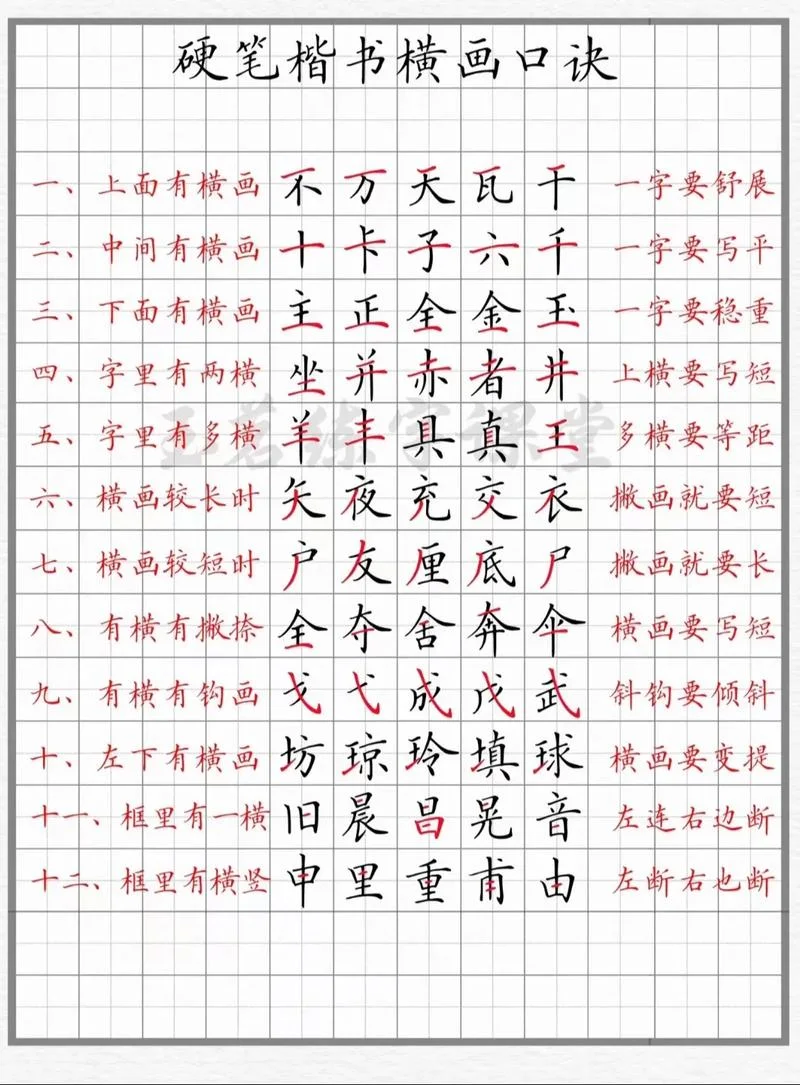 硬笔楷书横画口诀
一、上面有横画 不万天瓦干 一字要舒展
二、中间有横画 十卡子六千 一字要写平
三、下面有横画 主正全金玉 一字要稳重
四、字里有两横 坐并赤者井 上横要写短
五、字里有多横 羊丰具真王 多横要等距
六、横画较长时 矢夜充交衣 撇画就要短
七、横画较短时 户友厘底尸 撇画就要长
八、有横有撇捺 全夺舍奔伞 横画要写短
九、有横有钩画 戈弋成戊武 斜钩要倾斜
十、左下有横画 坊琼玲填球 横画要变提
十一、框里有一横 旧晨昌晃音 左连右边断
十二、框里有横竖 申里重甫由 左断右也断
王茗练字课堂